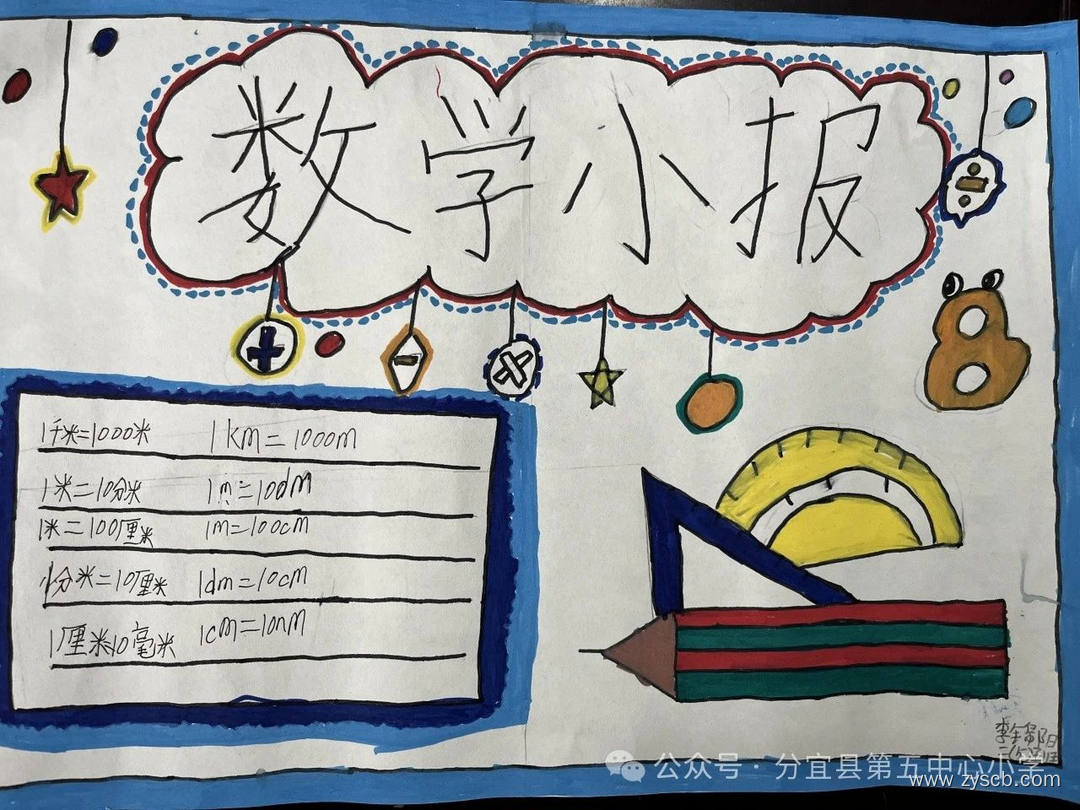 数学小报
÷
+
-
×
8
1千米=1000米 1km=1000m
1米=10分米 1m=10dm
1米=100厘米 1m=100cm
1分米=10厘米 1dm=10cm
1厘米10毫米 1cm=10nm
公众号·分宜县第五中心小学
www.zyscb.com